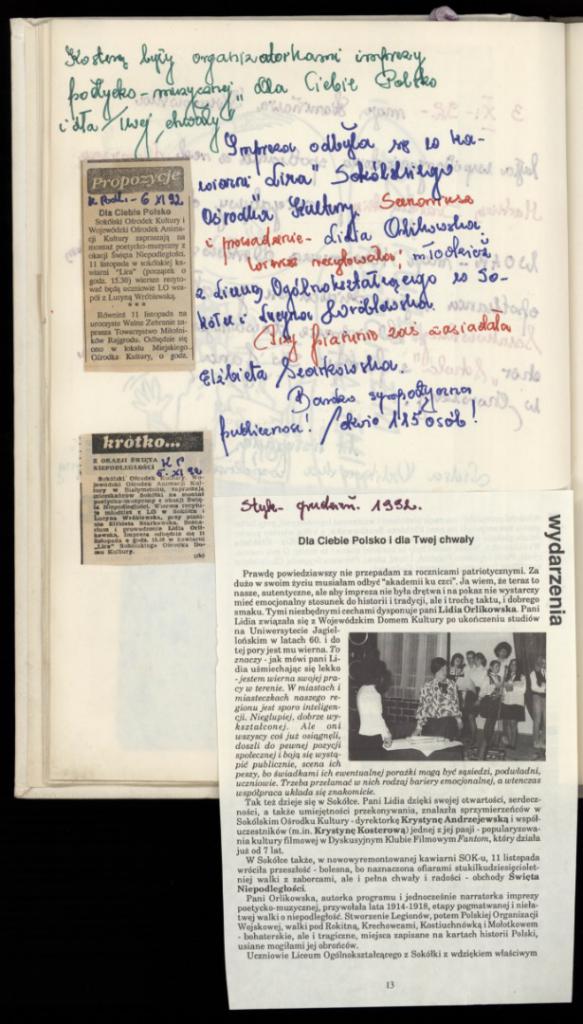 były organizatorkami imprezy
poetycko-muzycznej „Dla Ciebie Polsko
i dla Twej chwały"
Impreza odbyła się w ka-
wiarni „Lira" Sokólskiego
Ośrodka Kultury. Scenariusz
i prowadzenie - Lidia Orlikowska,
wiersze recytowała: młodzież
z Liceum Ogólnokształcącego w So-
kółce i Lucyna Wróblewska.
Przy pianinie zaś zasiadała
Elżbieta Szarkowska.
Bardzo sympatyczna
publiczność! około 115 osób!
Propozycje
6 XI 92
Dla Ciebie Polsko
Sokólski Ośrodek Kultury i
Wojewódzki Ośrodek Anima-
cji Kultury zapraszają na
montaż poetycko-muzyczny z
okazji Święta Niepodległości.
11 listopada w sokólskiej ka-
wiarni "Lira" (początek o
godz. 15.30) wiersze recyto-
wać będą uczniowie LO wes-
pół z Lucyną Wróblewską.
***
Również 11 listopada na
uroczyste Walne Zebranie za-
prasza Towarzystwo Miłośni-
ków Rajgrodu. Odbędzie się
ono w lokalu Miejskiego
Ośrodka Kultury, o godz.
krótko...
Z OKAZJI ŚWIĘTA
NIEPODLEGŁOŚCI
Sokólski Ośrodek Kultury
Styk - grudzień. 1992.
wydarzenia
Dla Ciebie Polsko i dla Twej chwały
Prawdę powiedziawszy nie przepadam za rocznicami patriotycznymi. Za
dużo w swoim życiu musiałam odbyć "akademii ku czci". Ja wiem, że teraz to
nasze, autentyczne, ale aby impreza nie była drętwa i na pokaz nie wystarczy
mieć emocjonalny stosunek do historii i tradycji, ale i trochę taktu, i dobrego
smaku. Tymi niezbędnymi cechami dysponuje pani Lidia Orlikowska. Pani
Lidia związała się z Wojewódzkim Domem Kultury po ukończeniu studiów
na Uniwersytecie Jagiel-
lońskim w latach 60. i do
tej pory jest mu wierna. To
znaczy - jak mówi pani Li-
dia uśmiechając się lekko
- jestem wierna swojej pra-
cy w terenie. W miastach i
miasteczkach naszego re-
gionu jest sporo inteligen-
cji. Niegłupiej, dobrze wy-
kształconej. Ale oni
wszyscy coś już osiągnęli,
doszli do pewnej pozycji
społecznej i boją się wystą-
pić publicznie, scena ich
peszy, bo świadkami ich ewentualnej porażki mogą być sąsiedzi, podwładni,
uczniowie. Trzeba przełamać w nich rodzaj bariery emocjonalnej, a wtenczas
współpraca układa się znakomicie.
Tak też dzieje się w Sokółce. Pani Lidia dzięki swojej otwartości, serdecz-
ności, a także umiejętności przekonywania, znalazła sprzymierzeńców w
Sokólskim Ośrodku Kultury - dyrektorkę Krystynę Andrzejewską i współ-
uczestników (m.in. Krystynę Kosterową) jednej z jej pasji - popularyzowa-
nia kultury filmowej w Dyskusyjnym Klubie Filmowym Fantom, który działa
już od 7 lat.
W Sokółce także, w nowowyremontowanej kawiarni SOK-u, 11 listopada
wróciła przeszłość - bolesna, bo naznaczona ofiarami stukilkudziesięciolet-
niej walki z zaborcami, ale i pełna chwały i radości - obchody Święta
Niepodległości.
Pani Orlikowska, autorka programu i jednocześnie narratorka imprezy
poetycko-muzycznej, przywołała lata 1914-1918, etapy pogmatwanej i nieła-
twej walki o niepodległość. Stworzenie Legionów, potem Polskiej Organizacji
Wojskowej, walki pod Rokitną, Krechowcami, Kostiuchnówką i Mołotkowem
- bohaterskie, ale i tragiczne, miejsca zapisane na kartach historii Polski,
usiane mogiłami jej obrońców.
Uczniowie Liceum Ogólnokształcącego z Sokółki z wdziękiem właściwym
13